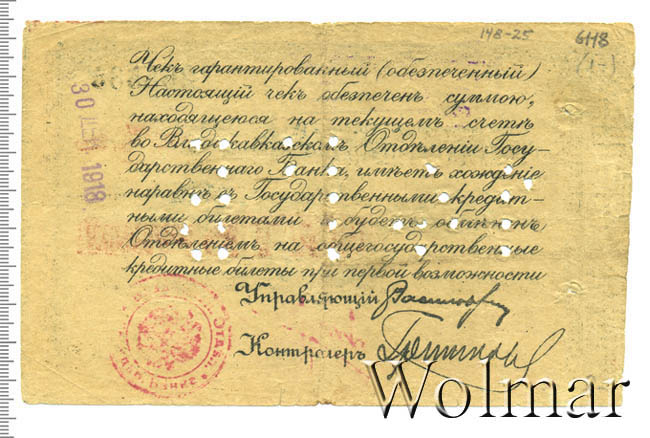 148-25
6448
(1-)
Чекъ гарантированный (обезпеченный)
Настоящій чекъ обезпеченъ суммою,
находящеюся на текущемъ счетѣ
во Владикавказскомъ Отдѣленіи Госу-
дарственнаго Банка, имѣетъ хожденіе
наравнѣ съ Государственными кредит-
ными билетами и будетъ обмѣненъ
Отдѣленіемъ на общегосударственные
кредитные билеты при первой возможности
Управляющій
Контролеръ
30
1918
Wolmar